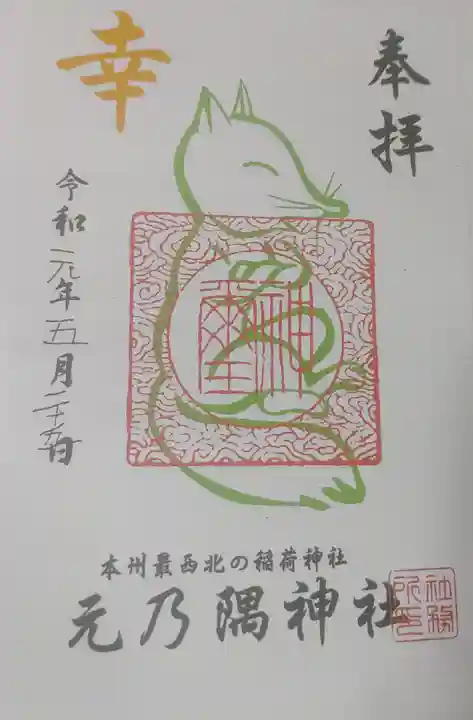 奉拝
幸
令和元年五月二十五日
神璽
本州最西北の稲荷神社
元乃隅神社
社務所之印